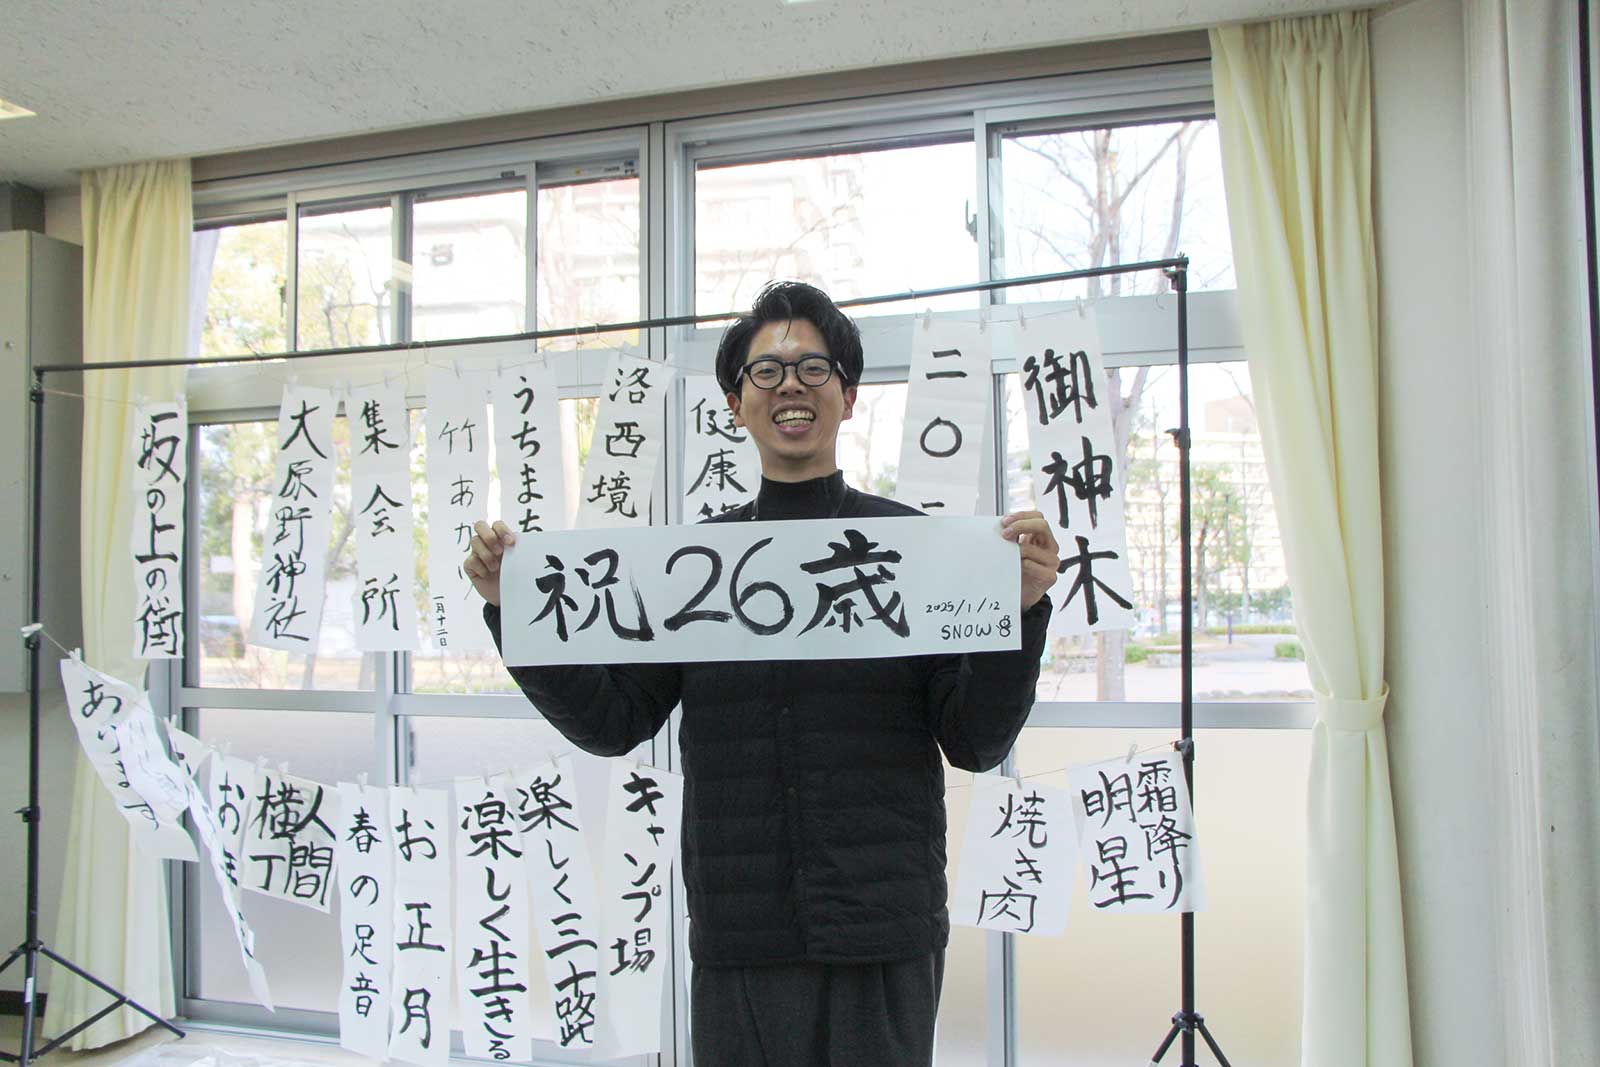 祝26歳
2025/1/12
SNOW
御神木
二〇二
健康
洛西境
うちまち
竹あかり
一月十二日
集会所
大原野神社
坂の上の街
霜降り
明星
焼き肉
キャンプ場
楽しく三十路
楽しく生きる
お正月
春の足音
人間
横丁
お年
あります